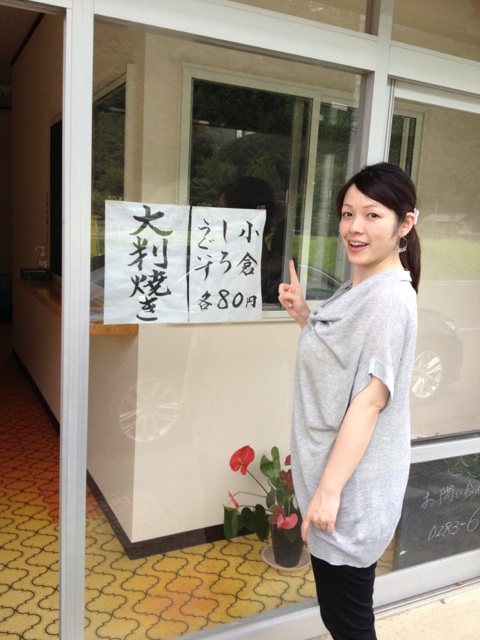 大判焼き
小倉
しろ
うぐいす
各80円
お問い合
0283-6